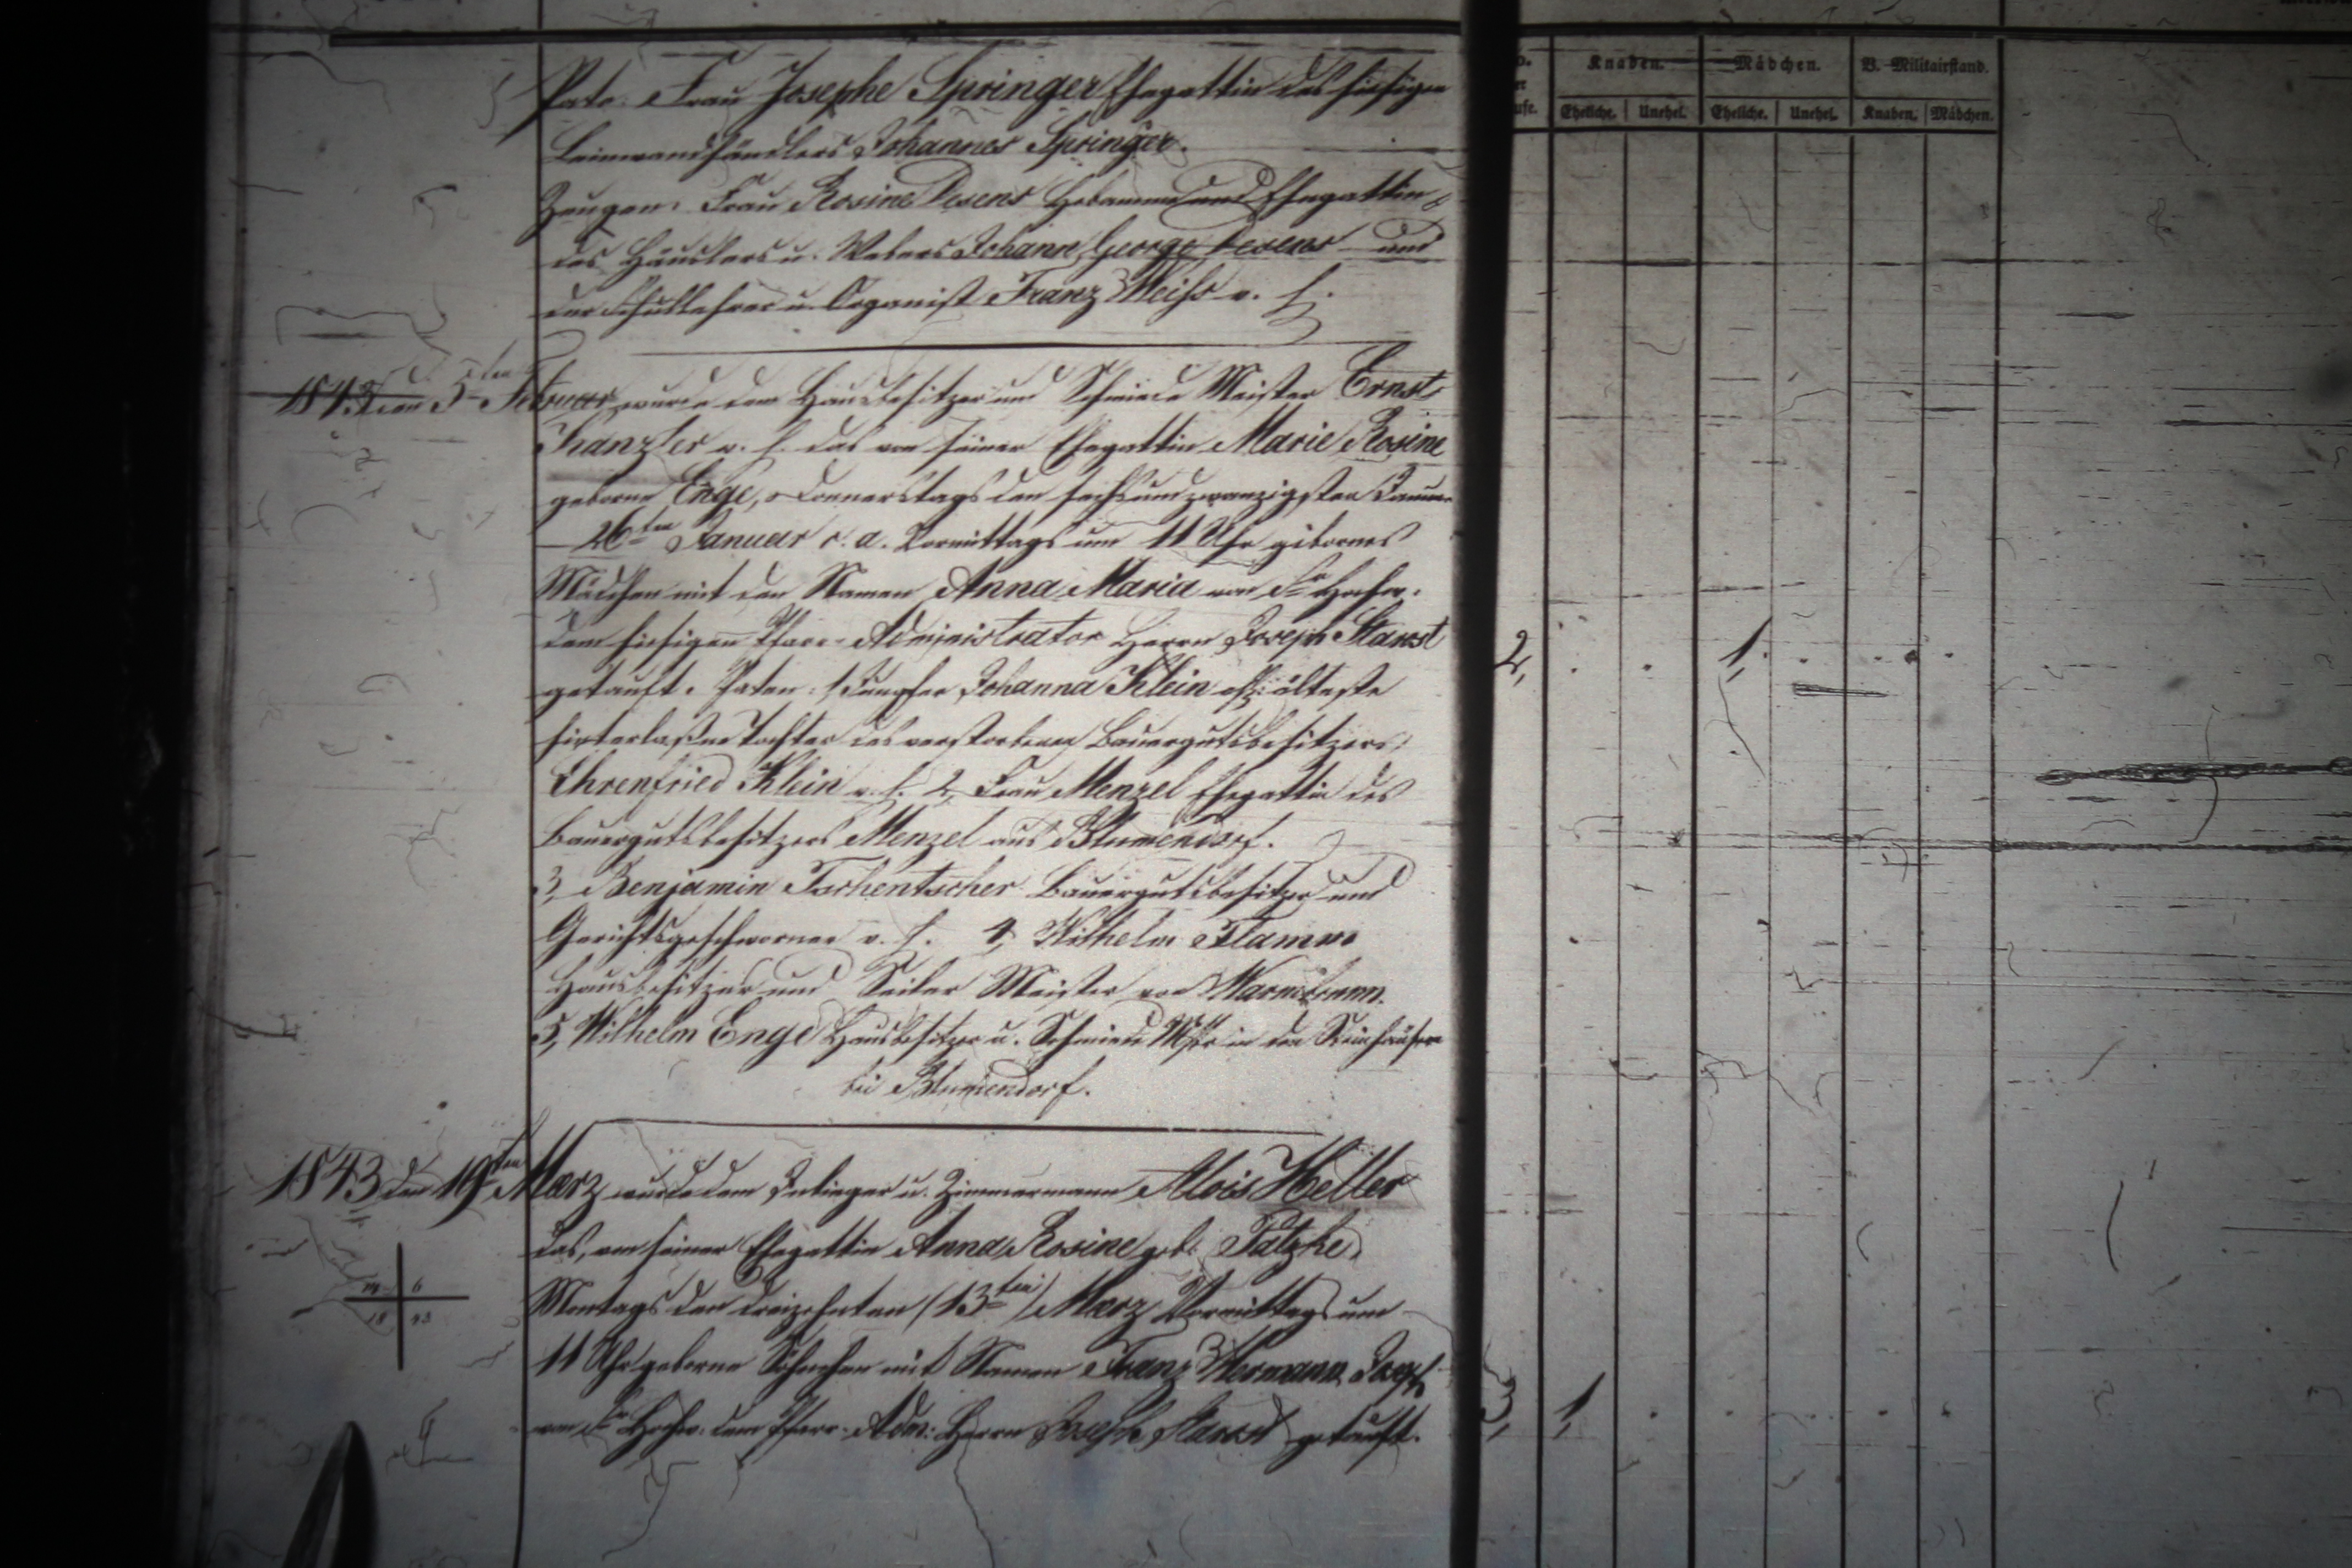 Pate: Frau Josephe Springer Ehegattin des hiesigen
Leinwandhändlers Johannes Springer.
Zeugen: Frau Rosine Desens Hebamme und Ehegattin
des Häuslers u. Webers Johann George Desens und
der Schullehrer u. Organist Franz Weiss v. h.
1843 den 5ten Februar wurde dem Hausbesitzer und Schmiede Meister Ernst
Kanzler v. h. das von seiner Ehegattin Marie Rosine
geborne Enge, Donnerstags den sechsundzwanzigsten Januar
26ten Januar c. a. Vormittags um 11 Uhr gebornes
Mädchen mit den Namen Anna Maria von Sr Hochw.
dem hiesigen Pfarr-Administrator Herrn Joseph
getauft. Paten: 1, Jungfer Johanna Klein älteste
hinterlaßne Tochter des verstorbenen Bauergutsbesitzers
Ehrenfried Klein v. h. 2, Frau Menzel Ehegattin des
Bauergutsbesitzers Menzel aus Blumendorf.
3, Benjamin Tschentscher Bauergutsbesitzer und
Gerichtsgeschworner v. h. 4, Wilhelm Flamm
Hausbesitzer und Seiler Meister von Warmbrunn.
5, Wilhelm Enge Hausbesitzer u. Schmiede Mstr in den Steinhäusern
bei Blumendorf.
1843 den 19ten Maerz wurde dem Inlieger u. Zimmermann Alois Heller
das, von seiner Ehegattin Anna Rosine geb. Patzke
Montags den dreizehnten (13ten) Maerz Vormittags um
11 Uhr geborne Söhnchen mit Namen Franz Hermann Joseph
von Sr Hochw. dem Pfarr-Adm: Herrn Joseph getauft.
Knaben. Mädchen. B. Militairstand.
Eheliche. Unehel. Eheliche. Unehel. Knaben. Mädchen.
2, 1,
3, 1,